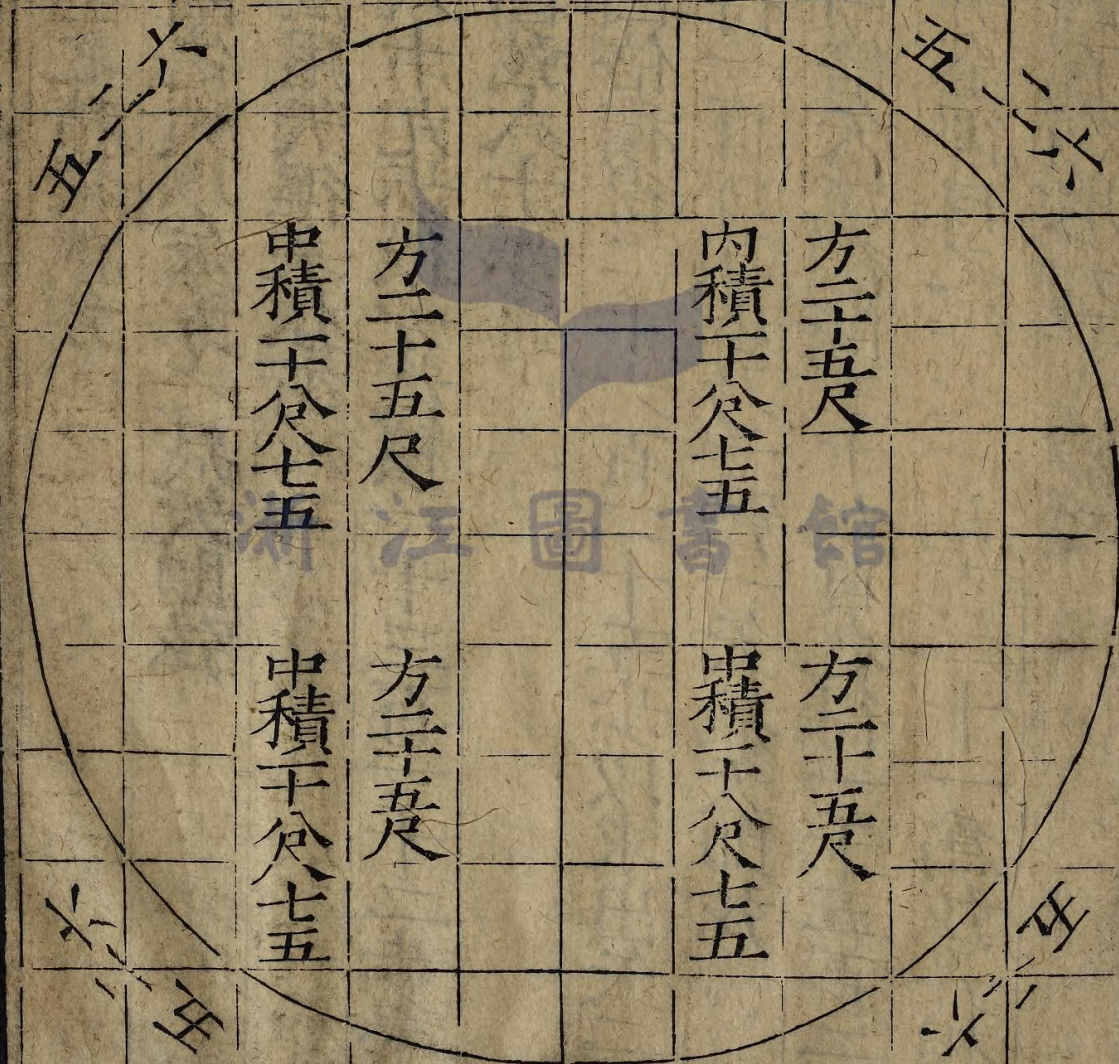 六二五
方二十五尺
内積一十八尺七五
方二十五尺
中積一十八尺七五
六二五
方二十五尺
中積一十八尺七五
方二十五尺
中積一十八尺七五
六二五
六二五
浙江圖書館